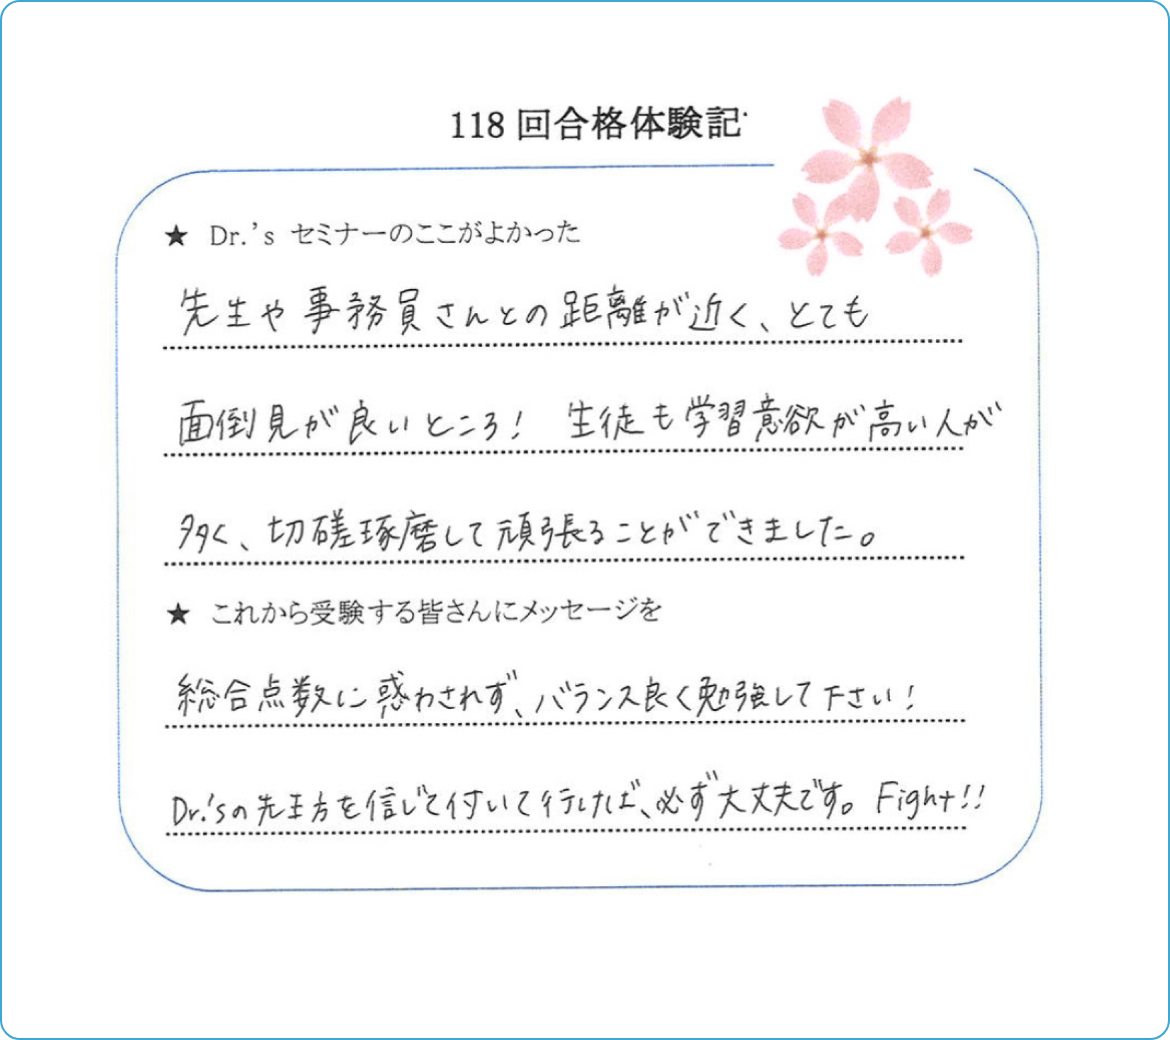 118回合格体験記
★ Dr.'s セミナーのここがよかった
先生や事務員さんとの距離が近く、とても
面倒見が良いところ! 生徒も学習意欲が高い人が
多く、切磋琢磨して頑張ることができました。
★ これから受験する皆さんにメッセージを
総合点数に惑わされず、バランス良く勉強して下さい!
Dr.'sの先生方を信じて付いて行ければ、必ず大丈夫です。Fight!!